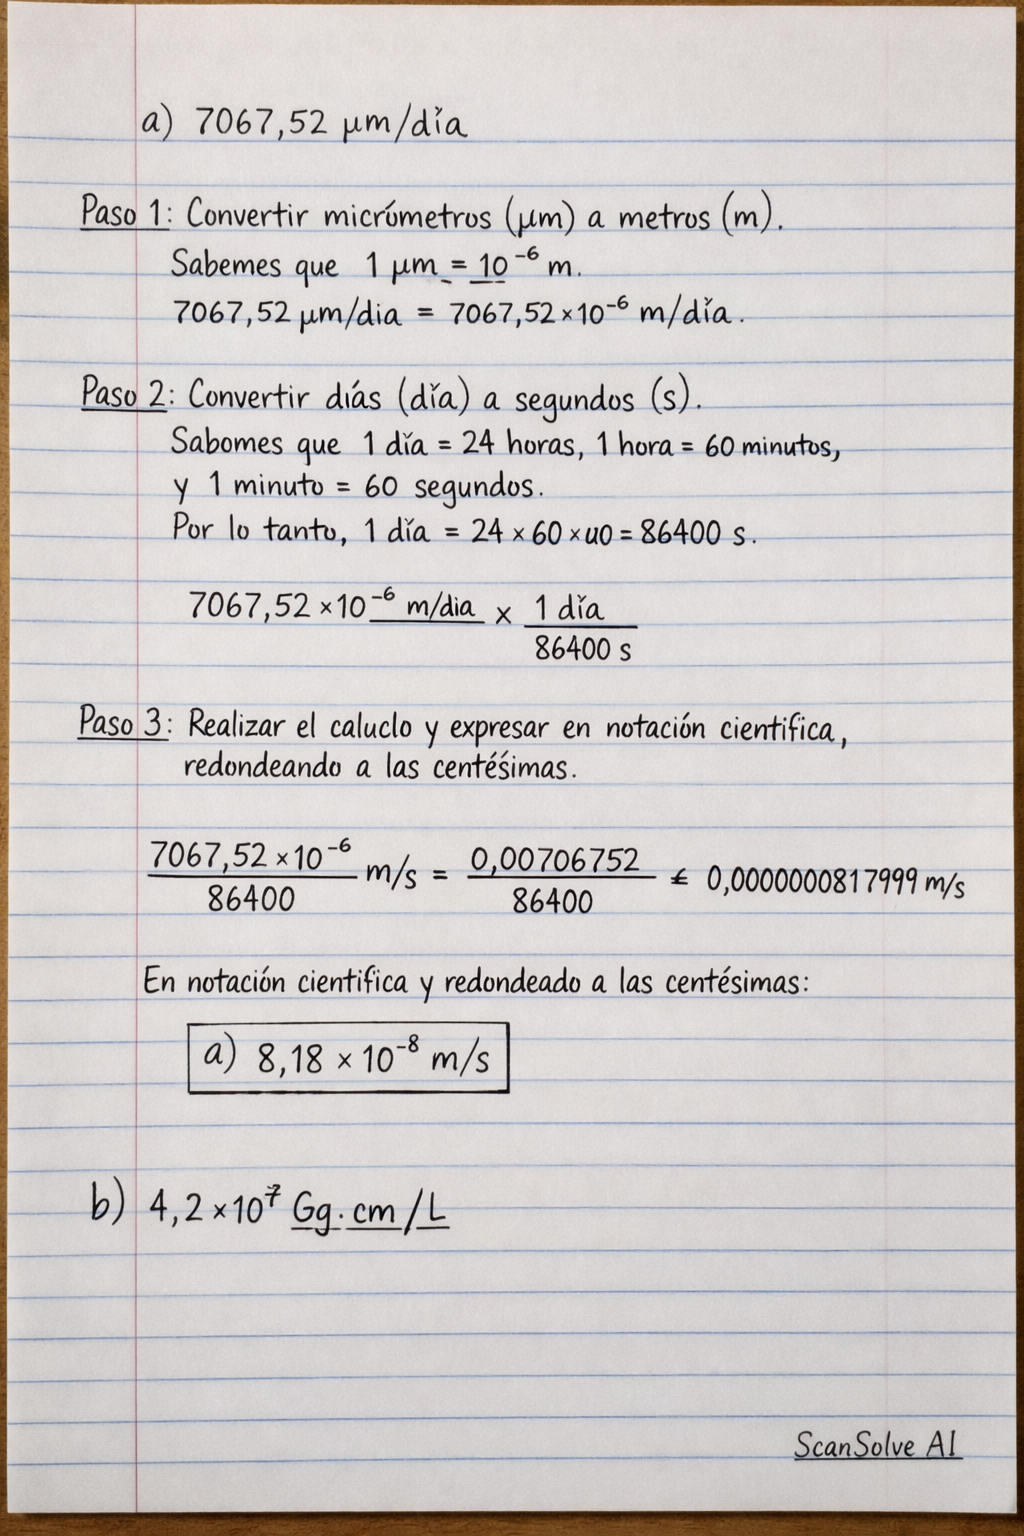 a) 7067,52 μm/día
Paso 1: Convertir micrómetros (μm) a metros (m).
Sabemes que 1 μm = 10⁻⁶ m.
7067,52 μm/dia = 7067,52 × 10⁻⁶ m/día.
Paso 2: Convertir diás (día) a segundos (s).
Sabomes que 1 día = 24 horas, 1 hora = 60 minutos,
y 1 minuto = 60 segundos.
Por lo tanto, 1 día = 24 × 60 × uo = 86400 s.
7067,52 × 10⁻⁶ m/dia × 1 día
86400 s
Paso 3: Realizar el caluclo y expresar en notación cientifica,
redondeando a las centésimas.
7067,52 × 10⁻⁶ / 86400 m/s = 0,00706752 / 86400 ≤ 0,0000000817999 m/s
En notación cientifica y redondeado a las centésimas:
a) 8,18 × 10⁻⁸ m/s
b) 4,2 × 10⁷ Gg·cm/L
ScanSolve AI